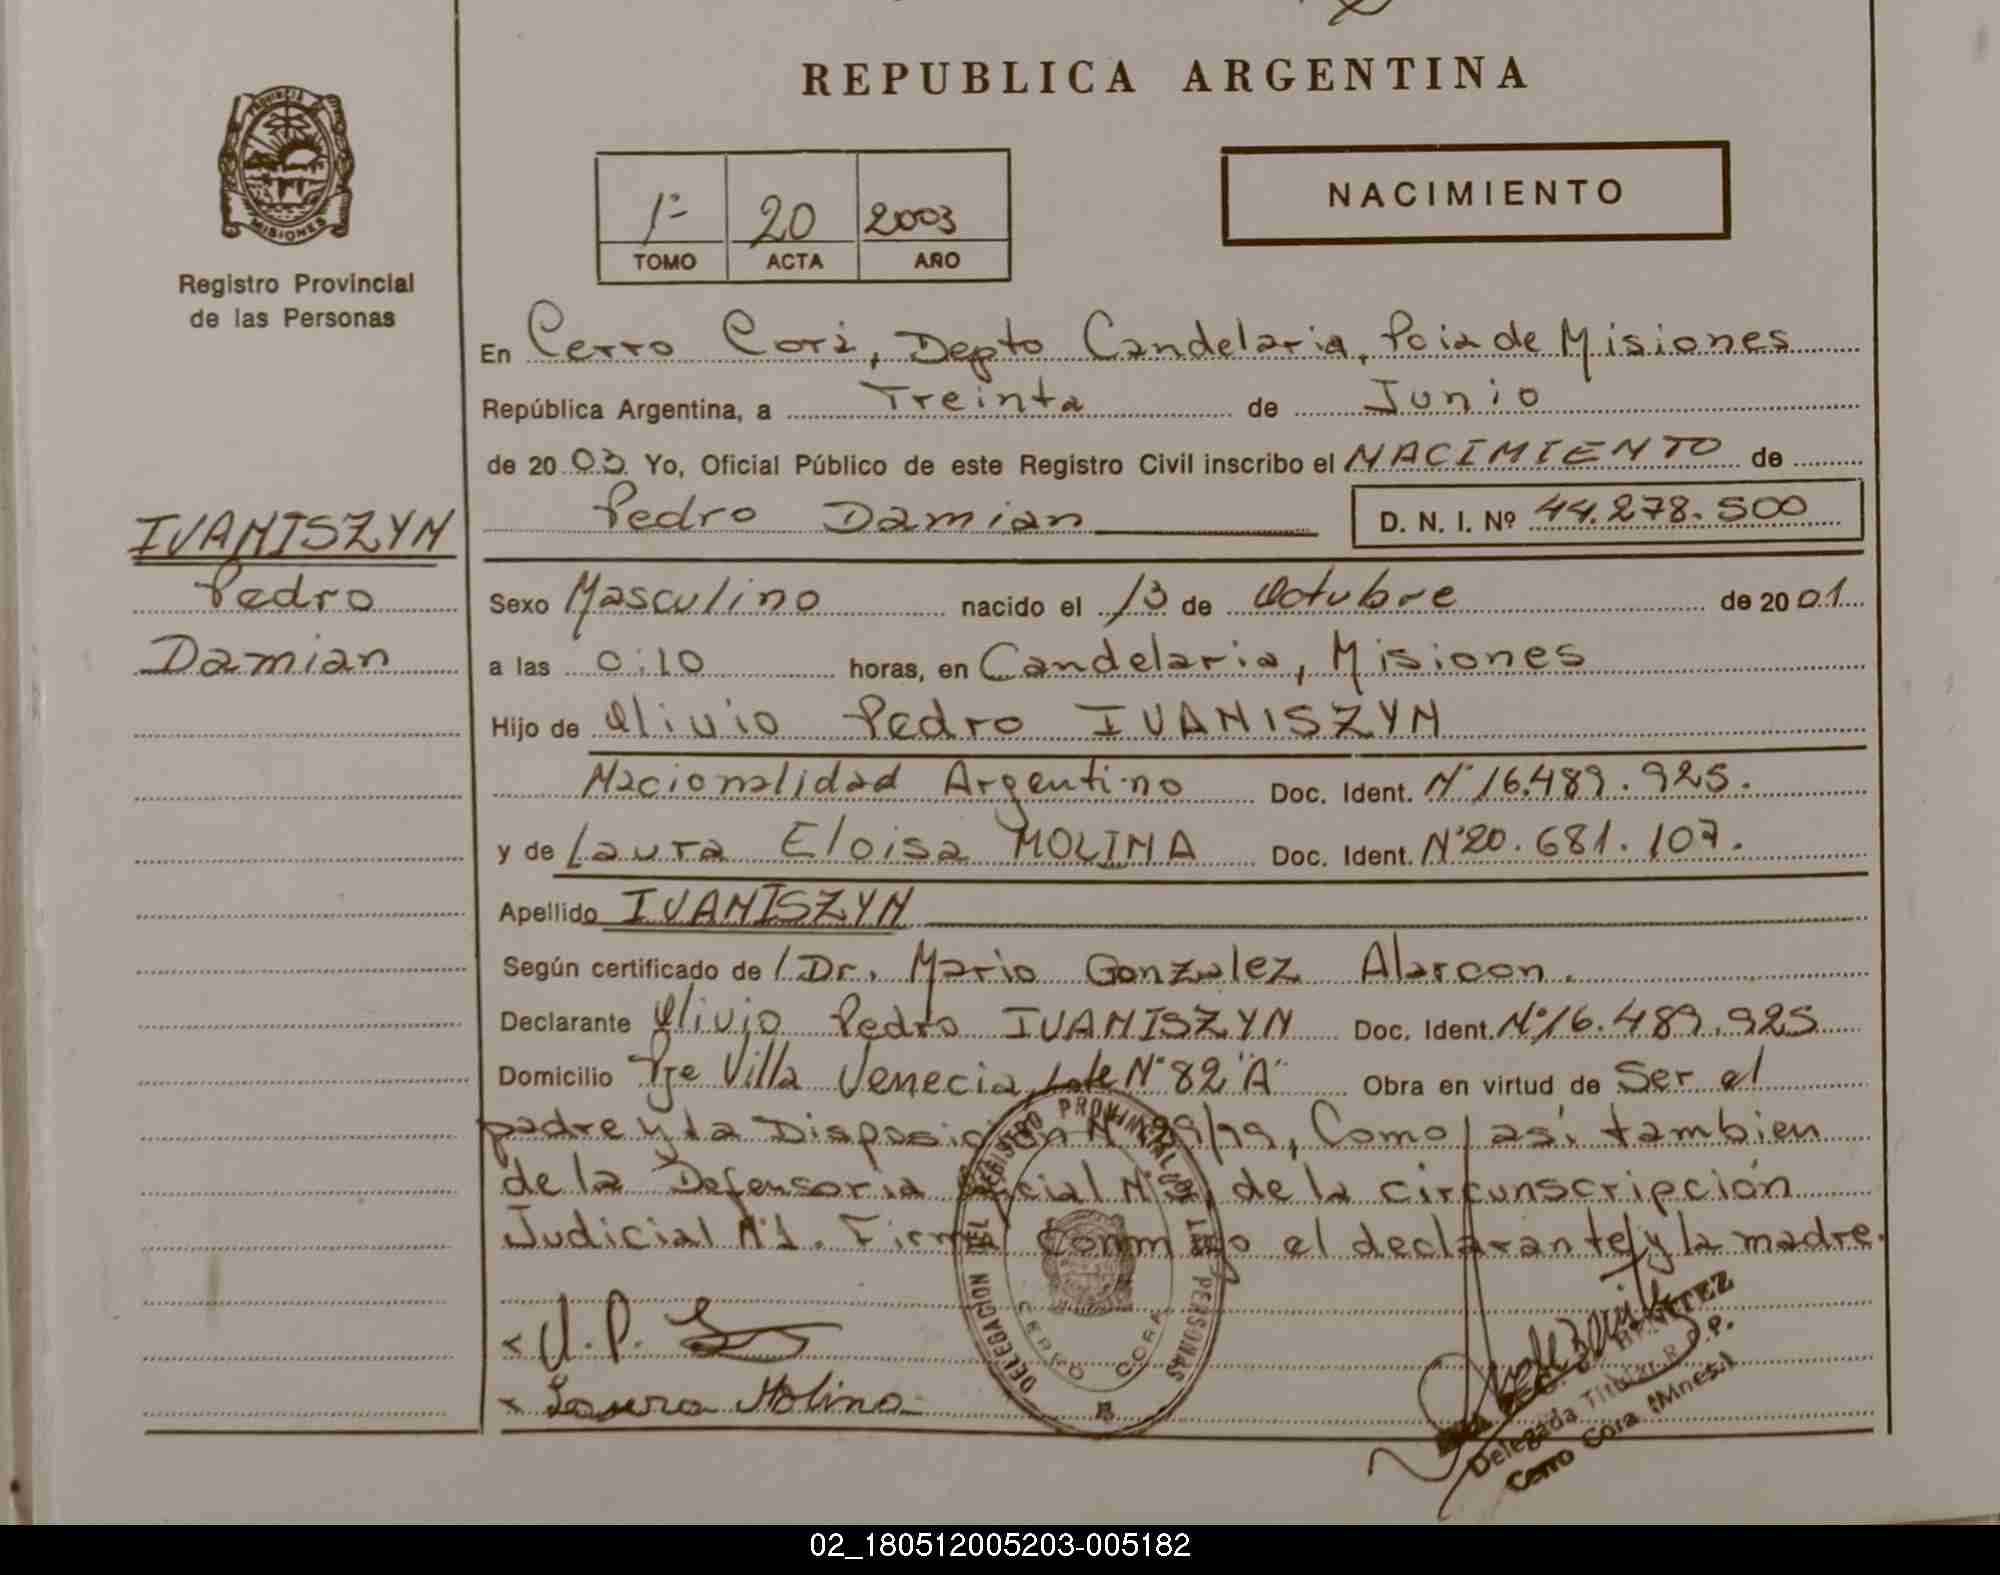 REPUBLICA ARGENTINA
PROVINCIA DE
MISIONES
Registro Provincial
de las Personas
1º 20 2003
TOMO ACTA AÑO
NACIMIENTO
En Cerro Corá, Depto Candelaria, Pcia de Misiones
República Argentina, a Treinta de Junio
de 2003 Yo, Oficial Público de este Registro Civil inscribo el NACIMIENTO de
Pedro Damian D. N. I. Nº 44.278.500
IVANISZYN
Pedro
Damian
Sexo Masculino nacido el 13 de Octubre de 2001
a las 0:10 horas, en Candelaria, Misiones
Hijo de Olivio Pedro IVANISZYN
Nacionalidad Argentino Doc. Ident. Nº 16.489.925.
y de Laura Eloisa MOLINA Doc. Ident. Nº 20.681.107.
Apellido IVANISZYN
Según certificado de / Dr. Mario Gonzalez Alarcon.
Declarante Olivio Pedro IVANISZYN Doc. Ident. Nº 16.489.925
Domicilio Pje Villa Venecia, Lote Nº 82 "A" Obra en virtud de Ser el
padre y la Disposición Nº /99, Como asi tambien
de la Defensoria de la circunscripción
Judicial Nº 1. Firma Conmigo el declarante y la madre.
DELEGACION DEL REGISTRO PROVINCIAL DE LAS PERSONAS
CERRO CORA
x O.P.
x Laura Molina
BENITEZ
Delegada Titular R.P.P.
Cerro Cora (Mnes.)
02_180512005203-005182